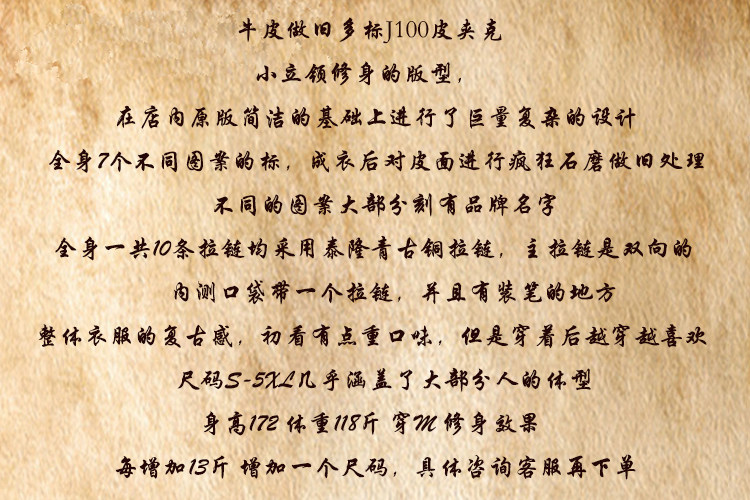 牛皮做旧多标J100皮夹克
小立领修身的版型，
在店内原版简洁的基础上进行了巨量复杂的设计
全身7个不同图案的标，成衣后对皮面进行疯狂石磨做旧处理
不同的图案大部分刻有品牌名字
全身一共10条拉链均采用泰隆青古铜拉链，主拉链是双向的
内测口袋带一个拉链，并且有装笔的地方
整体衣服的复古感，初看有点重口味，但是穿着后越穿越喜欢
尺码S-5XL几乎涵盖了大部分人的体型
身高172 体重118斤 穿M 修身效果
每增加13斤 增加一个尺码，具体咨询客服再下单